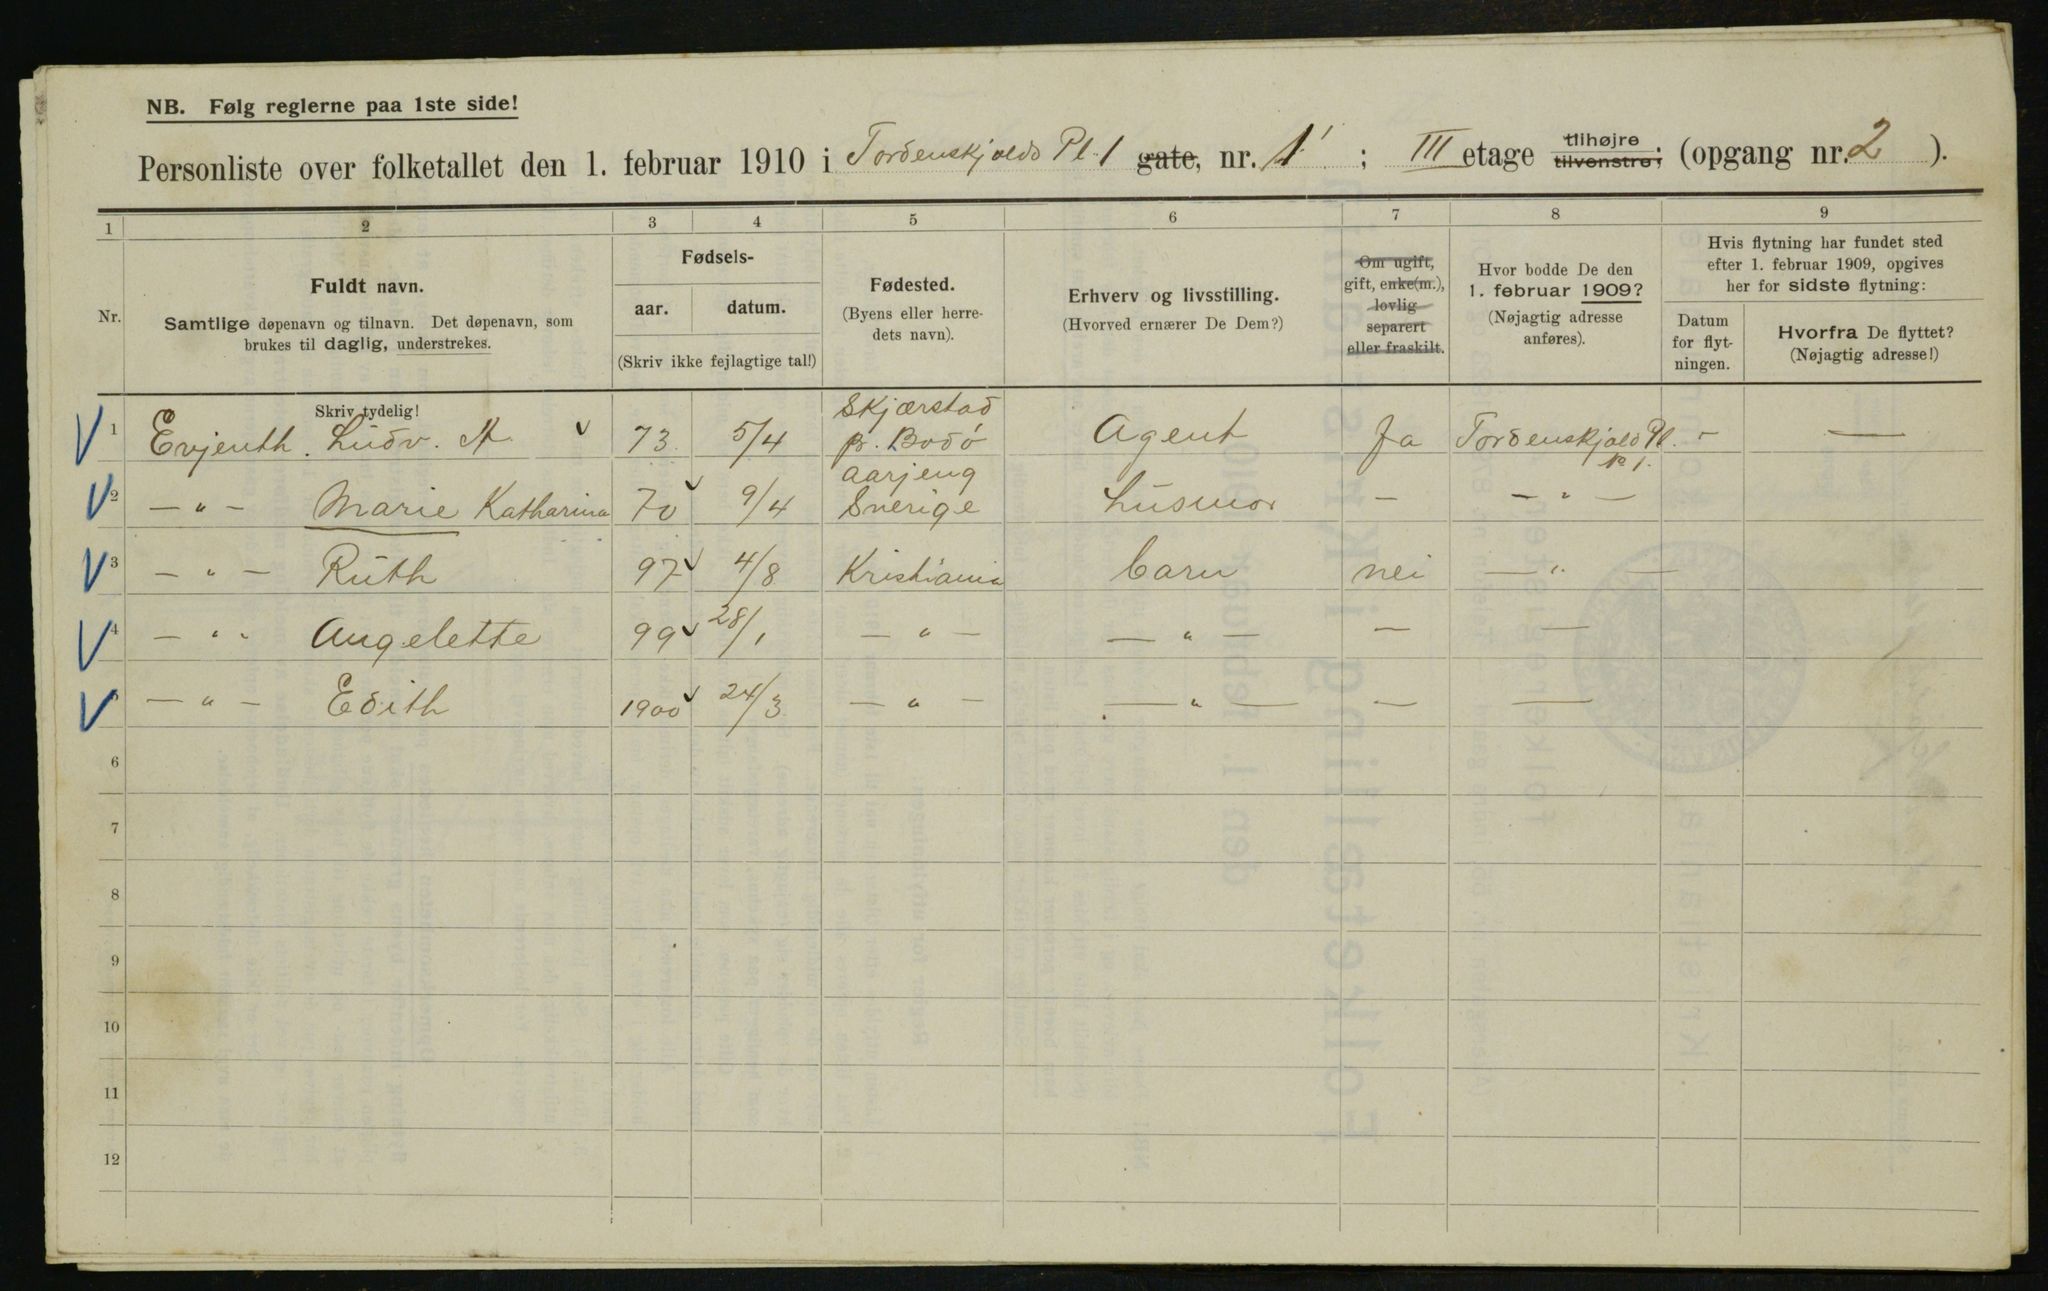 NB. Følg reglerne paa 1ste side!
Personliste over folketallet den 1. februar 1910 i Tordenskjolds Pl. 1 gate, nr. 1 ; III etage tilhøjre tilvenstre; (opgang nr. 2 ).
1 2 3 4 5 6 7 8 9
Nr.
Fuldt navn.
Samtlige døpenavn og tilnavn. Det døpenavn, som
brukes til daglig, understrekes.
Skriv tydelig!
Fødsels-
aar. datum.
(Skriv ikke fejlagtige tal!)
Fødested.
(Byens eller herre-
dets navn).
Erhverv og livsstilling.
(Hvorved ernærer De Dem?)
Om ugift,
gift, enke(m.),
lovlig
separert
eller fraskilt.
Hvor bodde De den
1. februar 1909?
(Nøjagtig adresse
anføres).
Hvis flytning har fundet sted
efter 1. februar 1909, opgives
her for sidste flytning:
Datum
for flyt-
ningen.
Hvorfra De flyttet?
(Nøjagtig adresse!)
1 Evjenth. Ludv. A 73 5/4 Skjærstad pr. Bodø Agent Ja Tordenskjolds Pl. No 1. - —
2 — " — Marie Katharina 70 9/4 Aarjeng Sverige Husmor — — " —
3 — " — Ruth 97 4/8 Kristiania barn nei — " — —
4 — " " Angelette 99 28/1 — " — — " — — —
5 — " — Edith 1900 24/3 — " — — " — — —
6
7
8
9
10
11
12